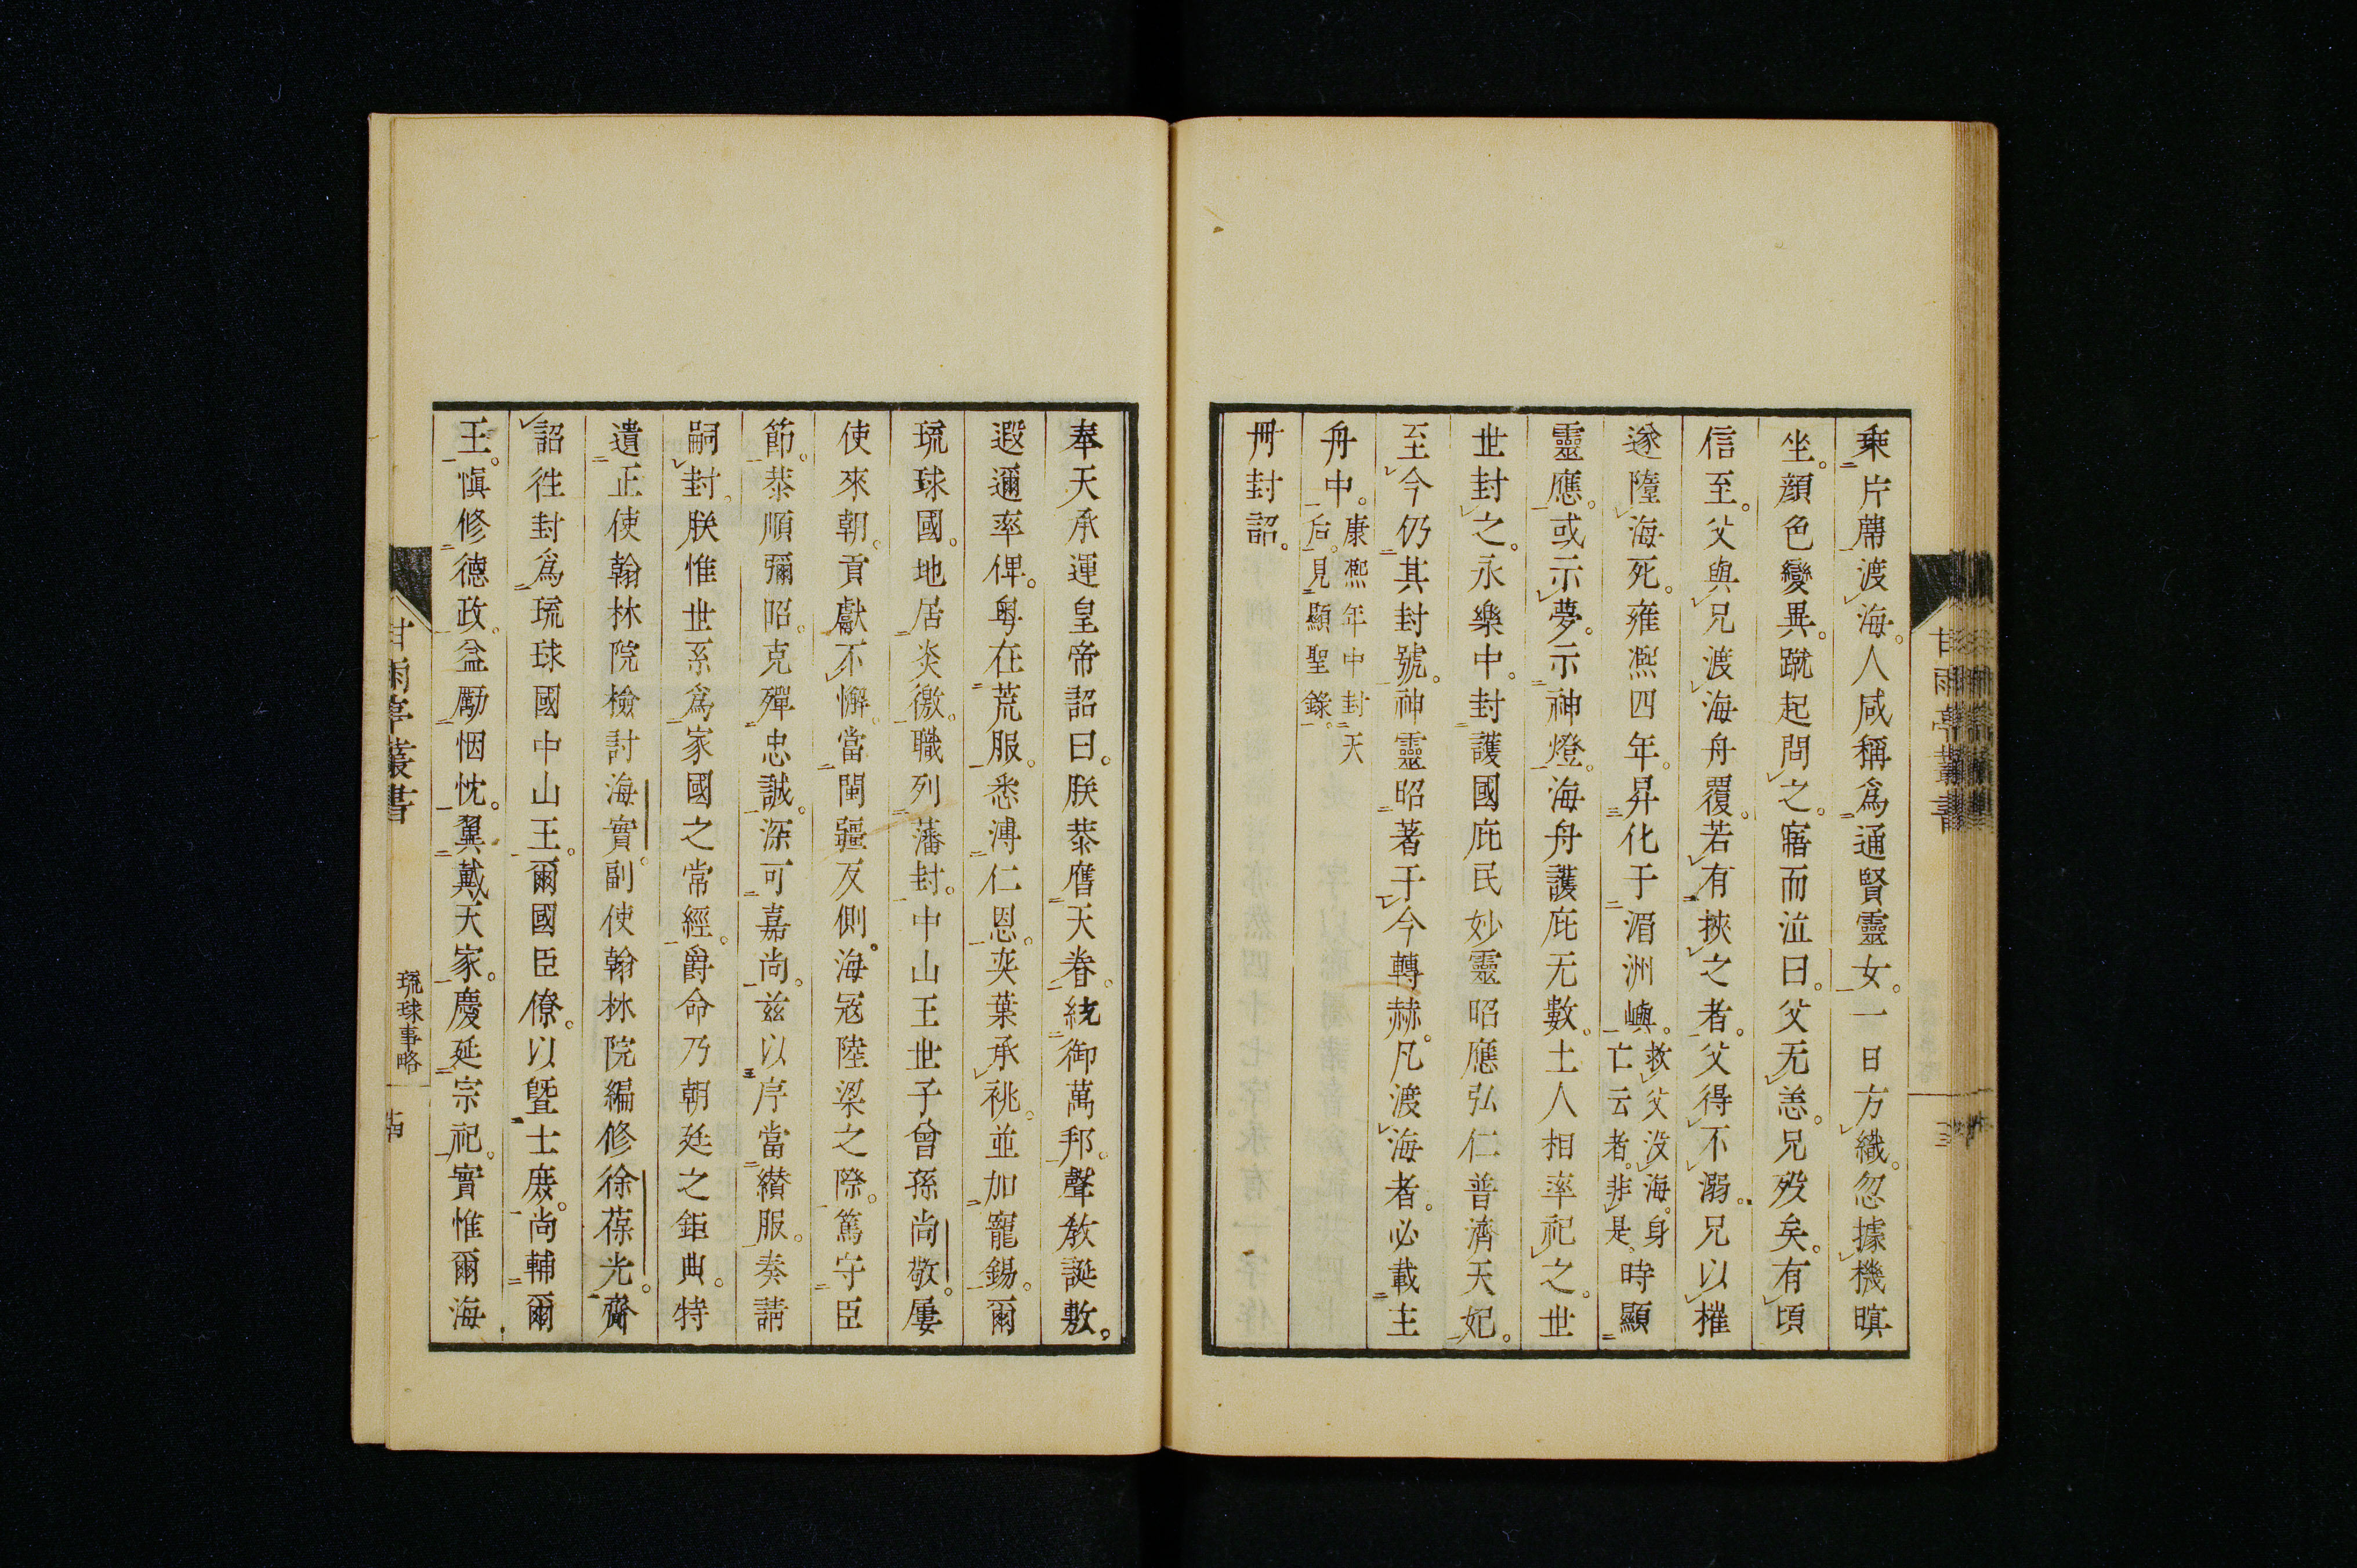 乘片席渡海。人咸稱爲通賢靈女。一日方織。忽據機暝
坐。顔色變異。蹴起問之。寤而泣曰。父无恙。兄歿矣。有頃
信至。父與兄渡海舟覆。若有挾之者。父得不溺。兄以摧
遂墮海死。雍凞四年。昇化于湄洲嶼。救父没海。身亡云者。非是、時顯
靈應。或示夢。示神燈。海舟護庇无數。土人相率祀之。世
世封之。永樂中。封護國庇民妙靈昭應弘仁普濟天妃。
至今仍其封號。神靈昭著于今轉赫。凡渡海者。必載主
舟中。康凞年中封天后。見顯聖錄。
冊封詔。
奉天承運皇帝詔曰。朕恭膺天眷。統御萬邦。聲教誕敷。
遐邇率俾。粤在荒服。悉溥仁恩。奕葉承祧。並加寵錫。爾
琉球國。地居炎徼。職列藩封。中山王世子曾孫尚敬。屢
使來朝。貢獻不懈。當閩疆反側。海寇陸梁之際。篤守臣
節。恭順彌昭。克殫忠誠。深可嘉尚。兹以序當纉服。奏請
嗣封。朕惟世系爲家國之常經。爵命乃朝廷之鉅典。特
遣正使翰林院檢討海寶。副使翰林院編修徐葆光。齎
詔徃封爲琉球國中山王。爾國臣僚。以曁士庻。尚輔爾
王。愼修德政。益勵悃忱。翼戴天家。慶延宗祀。實惟爾海
甘雨亭叢書
琉球事略